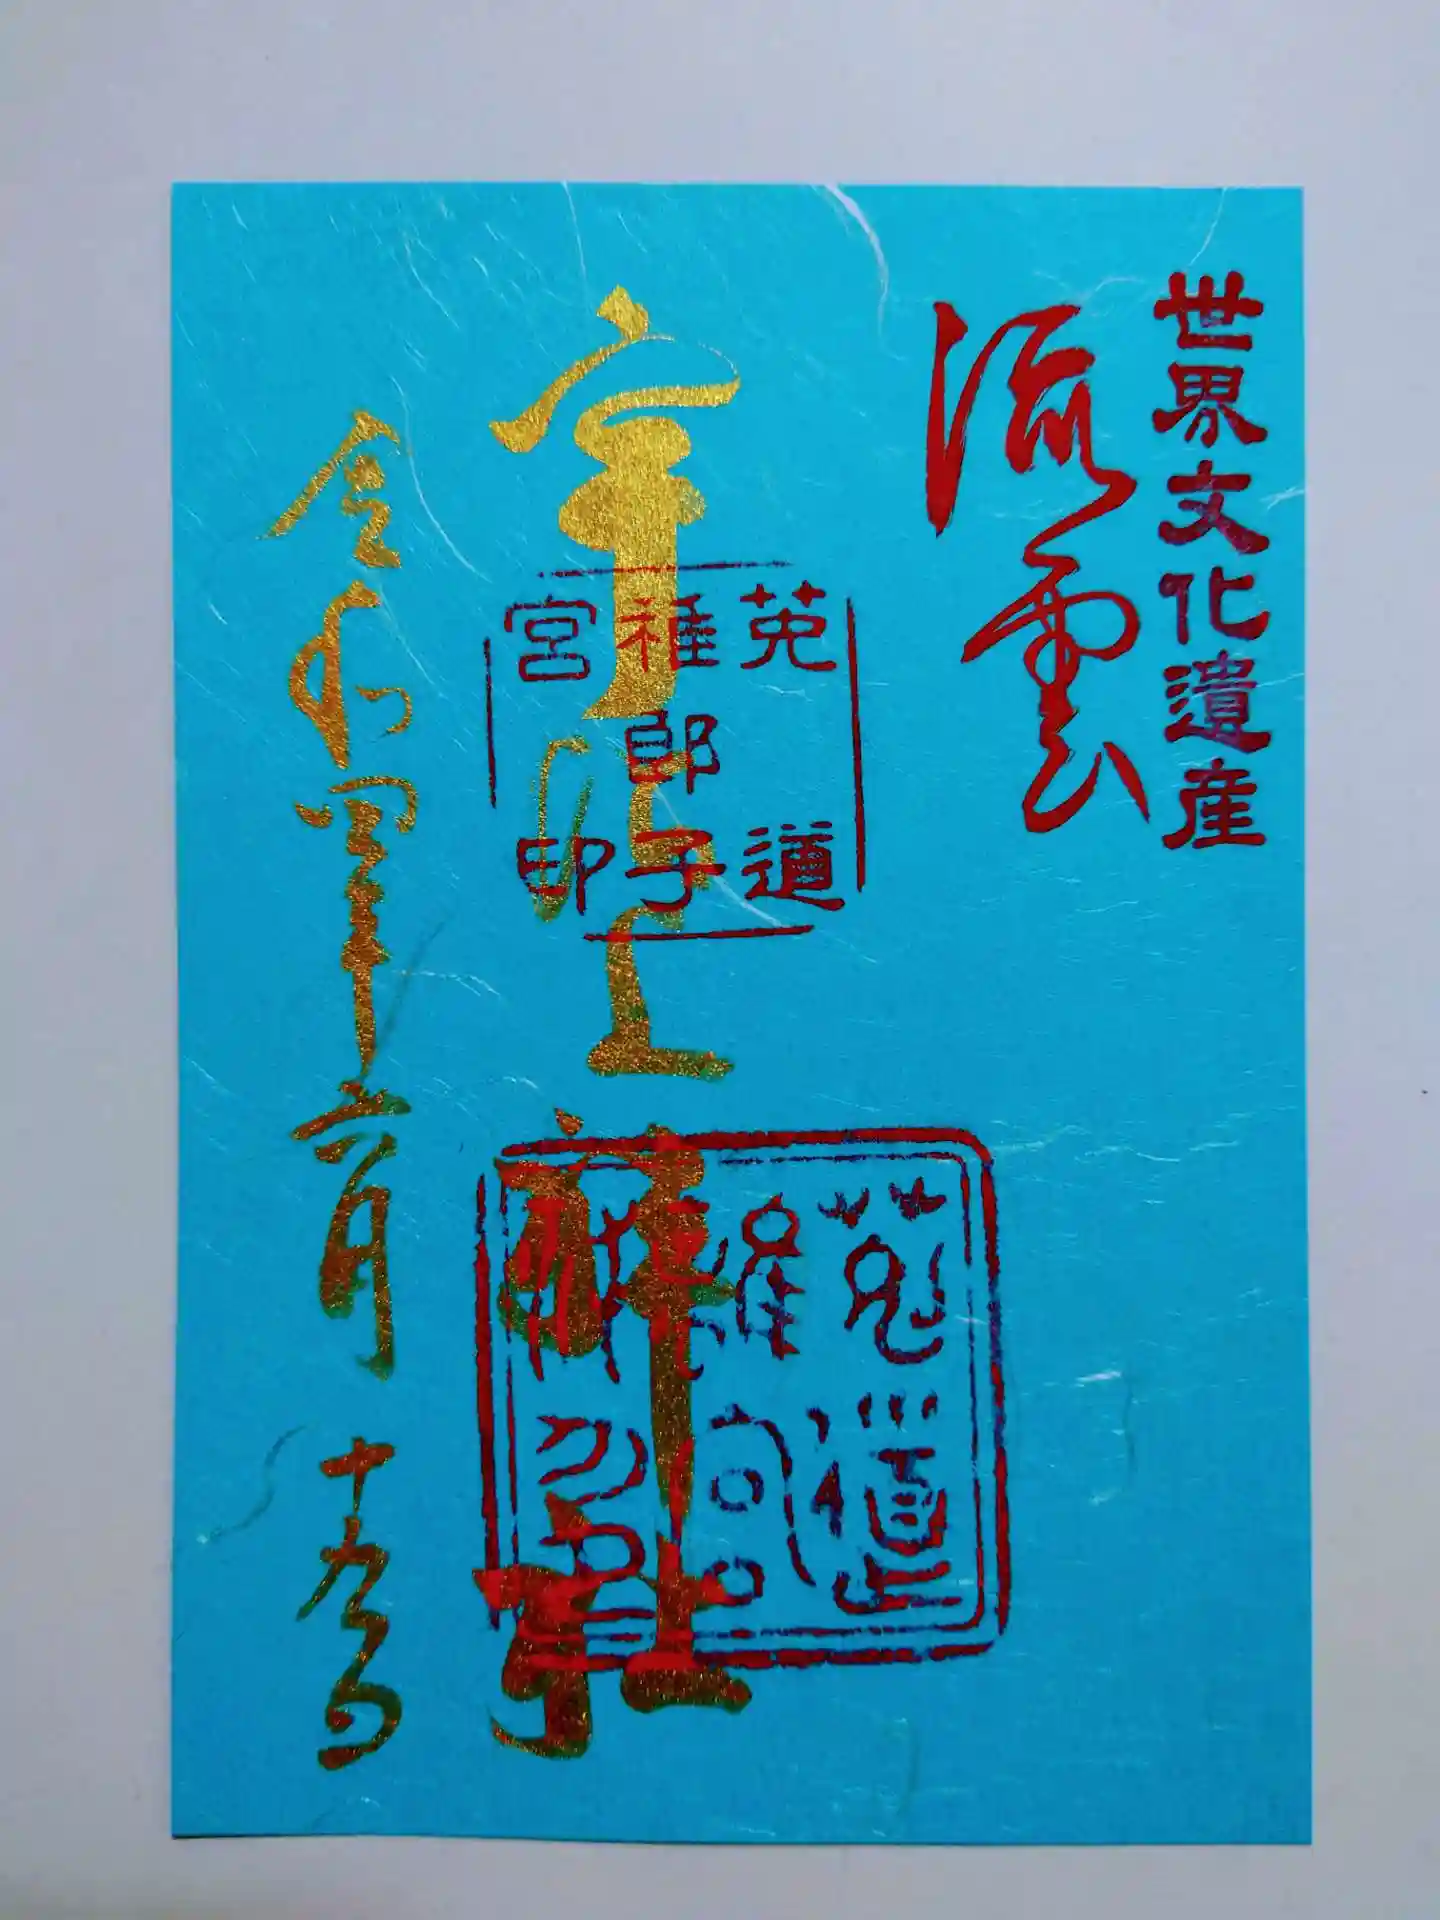 世界文化遺産
流雲
宇治上神社
菟道
稚郎子
宮印
菟道
令和四年六月十九日